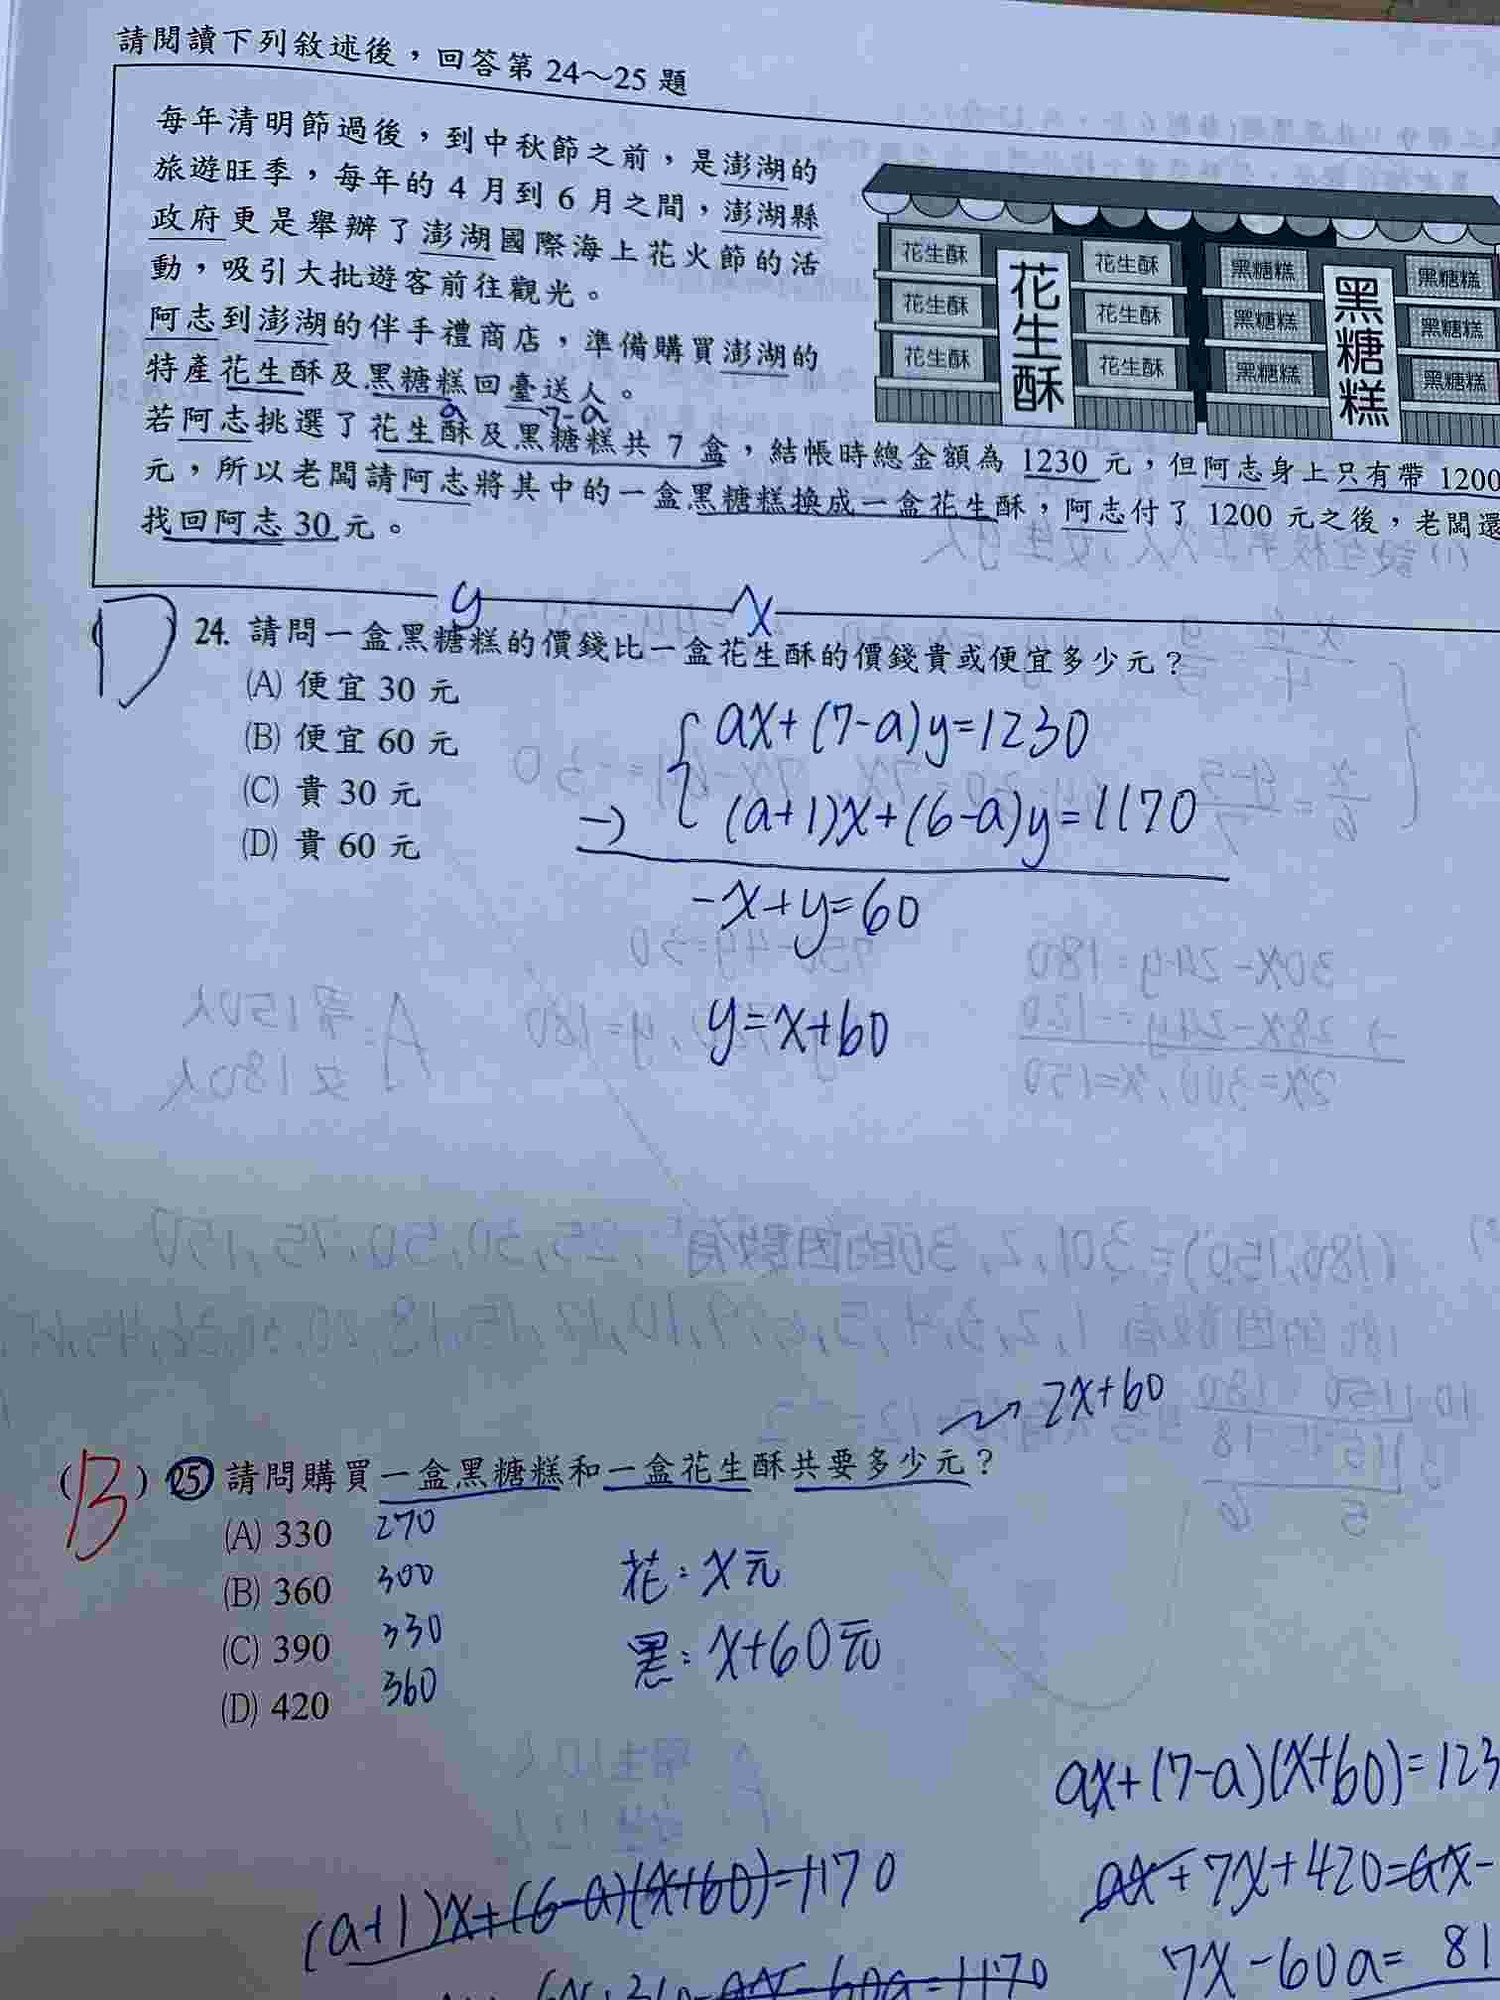 請閱讀下列敘述後,回答第 24~25 題
每年清明節過後,到中秋節之前,是澎湖的
旅遊旺季,每年的 4 月到 6 月之間,澎湖縣
政府更是舉辦了澎湖國際海上花火節的活
動,吸引大批遊客前往觀光。
阿志到澎湖的伴手禮商店,準備購買澎湖的
特產花生酥及黑糖糕回臺送人。
a 7-a
若阿志挑選了花生酥及黑糖糕共 7 盒,結帳時總金額為 1230 元,但阿志身上只有帶 1200
元,所以老闆請阿志將其中的一盒黑糖糕換成一盒花生酥,阿志付了 1200 元之後,老闆還
找回阿志 30 元。
花生酥 花生酥 黑糖糕 黑糖糕
花生酥 花生酥 黑糖糕 黑糖糕
花生酥 花生酥 黑糖糕 黑糖糕
花生酥
黑糖糕
y x
D 24. 請問一盒黑糖糕的價錢比一盒花生酥的價錢貴或便宜多少元?
(A) 便宜 30 元
(B) 便宜 60 元
(C) 貴 30 元
(D) 貴 60 元
ax+(7-a)y=1230
-) (a+1)x+(6-a)y=1170
-x+y=60
y=x+60
2x+60
(B) 25 請問購買一盒黑糖糕和一盒花生酥共要多少元?
(A) 330 270
(B) 360 300
(C) 390 330
(D) 420 360
花:x元
黑:x+60元
ax+(7-a)(x+60)=123
ax+7x+420=ax-
7x-60a= 81
(a+1)x+(6-a)(x+60)=1170